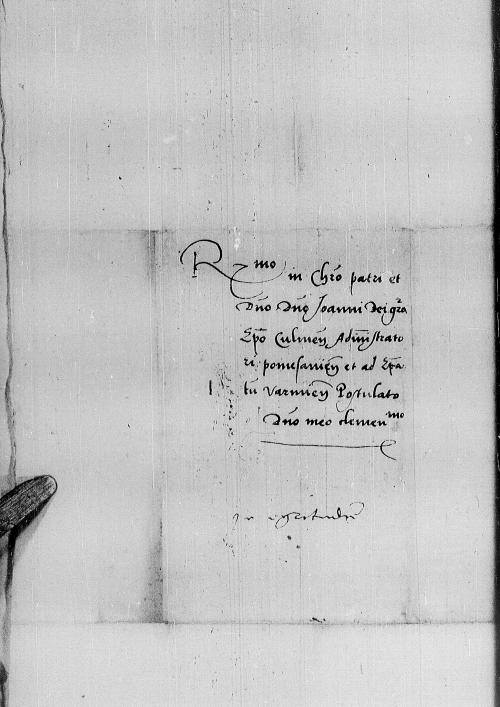 R mo in Chro patri et
Dno Dno Joanni Dei gra
Epo Culmen Administrato
ri pomesanien et ad Epa
tu Varmien Postulato
Dno meo clemen mo